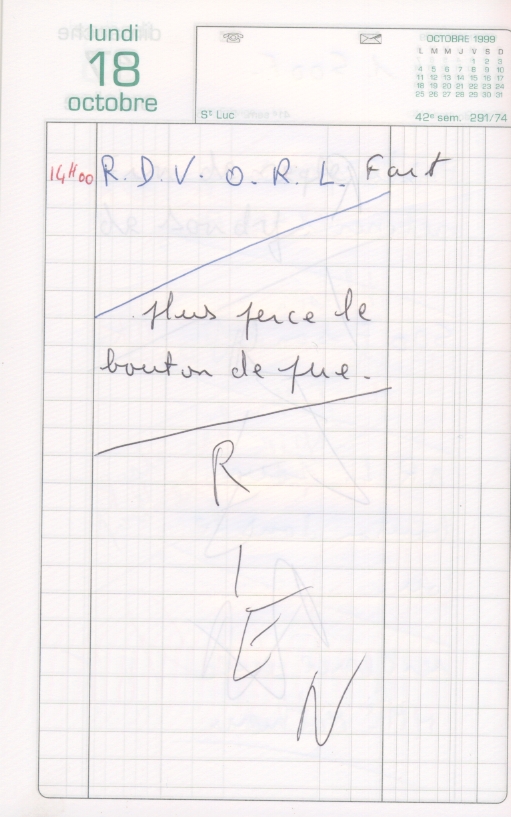 lundi
18
octobre
OCTOBRE 1999
L M M J V S D
1 2 3
4 5 6 7 8 9 10
11 12 13 14 15 16 17
18 19 20 21 22 23 24
25 26 27 28 29 30 31
St Luc
42e sem. 291/74
14H00 R.D.V. O.R.L. Fait
plus perce le
bouton de pue.
R
I
E
N